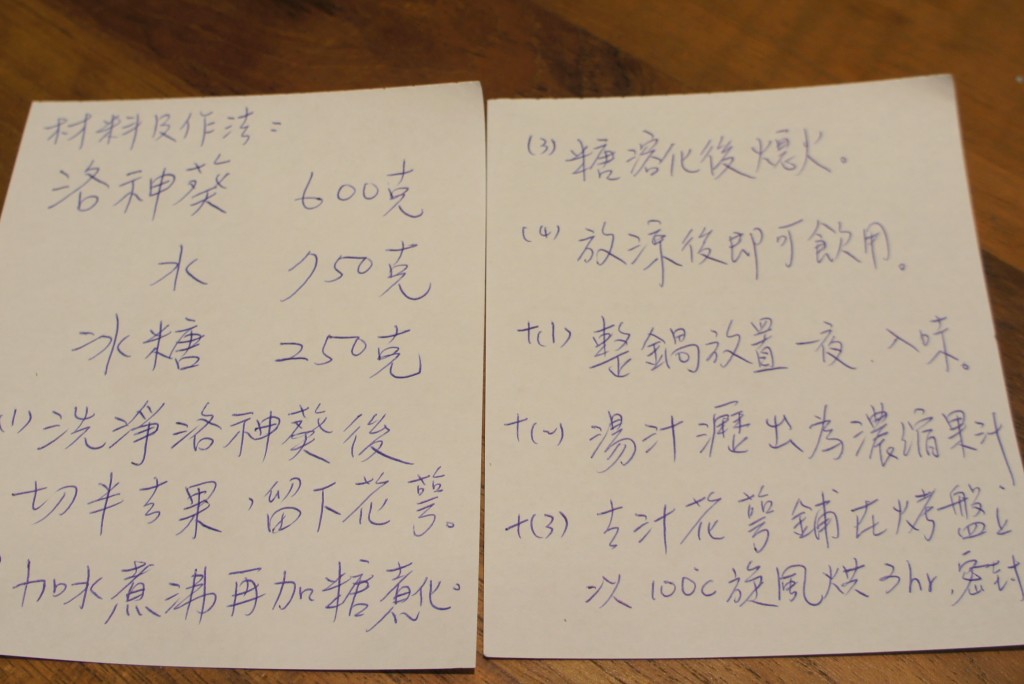 材料及作法:
洛神葵 600克
水 750克
冰糖 250克
(1) 洗淨洛神葵後
切半去果,留下花萼。
加水煮沸再加糖煮化。
(3) 糖溶化後熄火。
(4) 放涼後即可飲用。
+(1) 整鍋放置一夜、入味。
+(2) 湯汁瀝出為濃縮果汁
+(3) 去汁花萼鋪在烤盤上
以100℃旋風烘3hr,密封